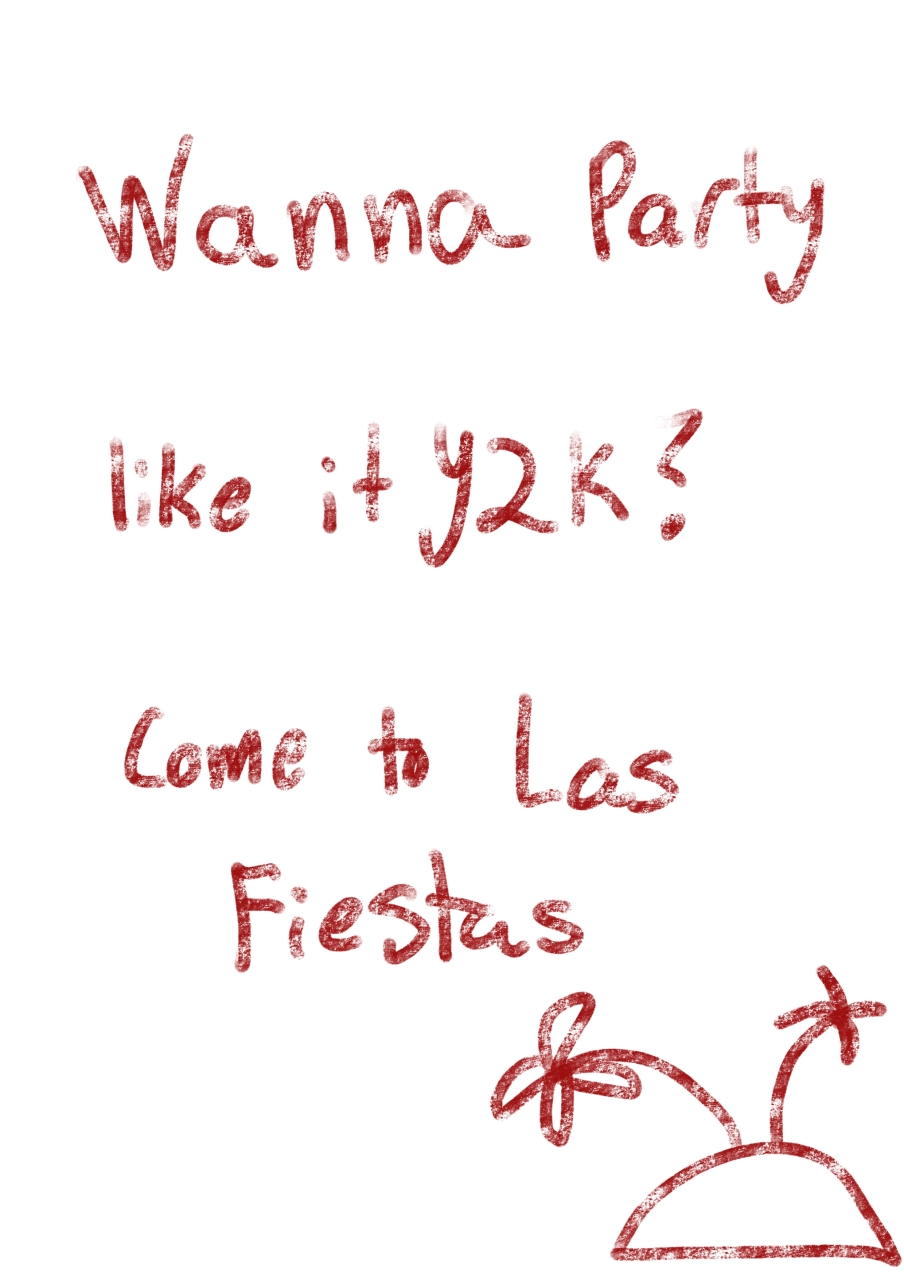 Wanna Party
like it Y2K?
Come to Las
Fiestas